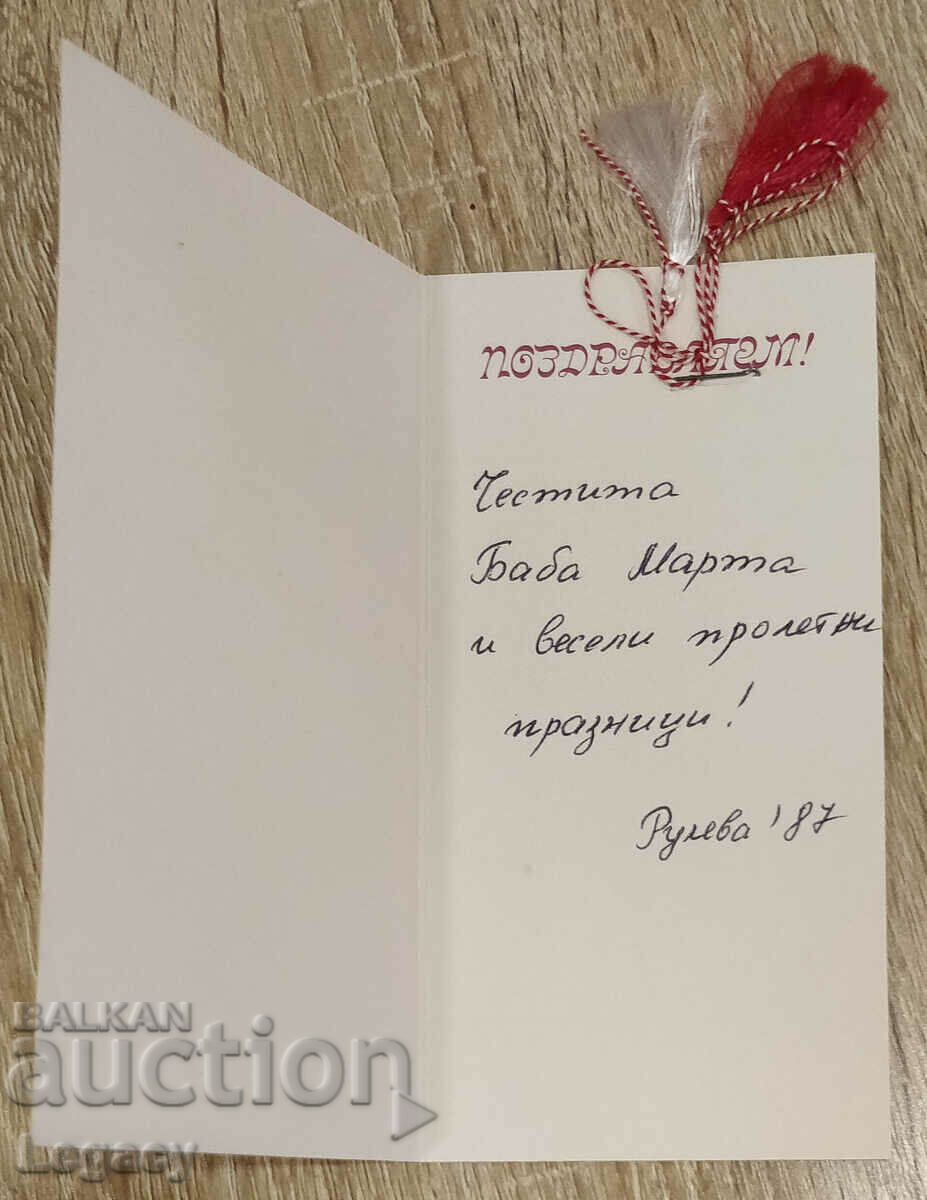 ПОЗДРАВЛЯЕМ!
Честита
Баба Марта
и весели пролетни
празници!
Рулева '87
BALKAN
auction
Legacy